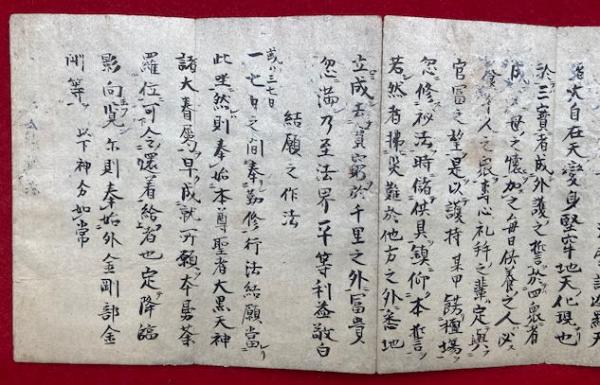 大自在天變身堅牢地天化現也
於三寶者成外護之誓於四衆者
成父母之懷加之每日供養之人必
食千人之衆專心礼拝之輩定與
官冨之望是以護持某甲餝檀場
忽修秘法時儲供具鎮仰本誓
若然者拂災難於他方之外悉地
立成去貧窮於千里之外冨貴
忽満乃至法界平等利益敬白
結願之作法
或ハ三七日
一七日之間奉勤修行法結願當
此座然則奉始本尊聖者大黒天神
諸大眷属早成就所願本曼荼
羅位可令還着給者也定降臨
影向覧尓則奉始外金剛部金
剛等 以下神分如常